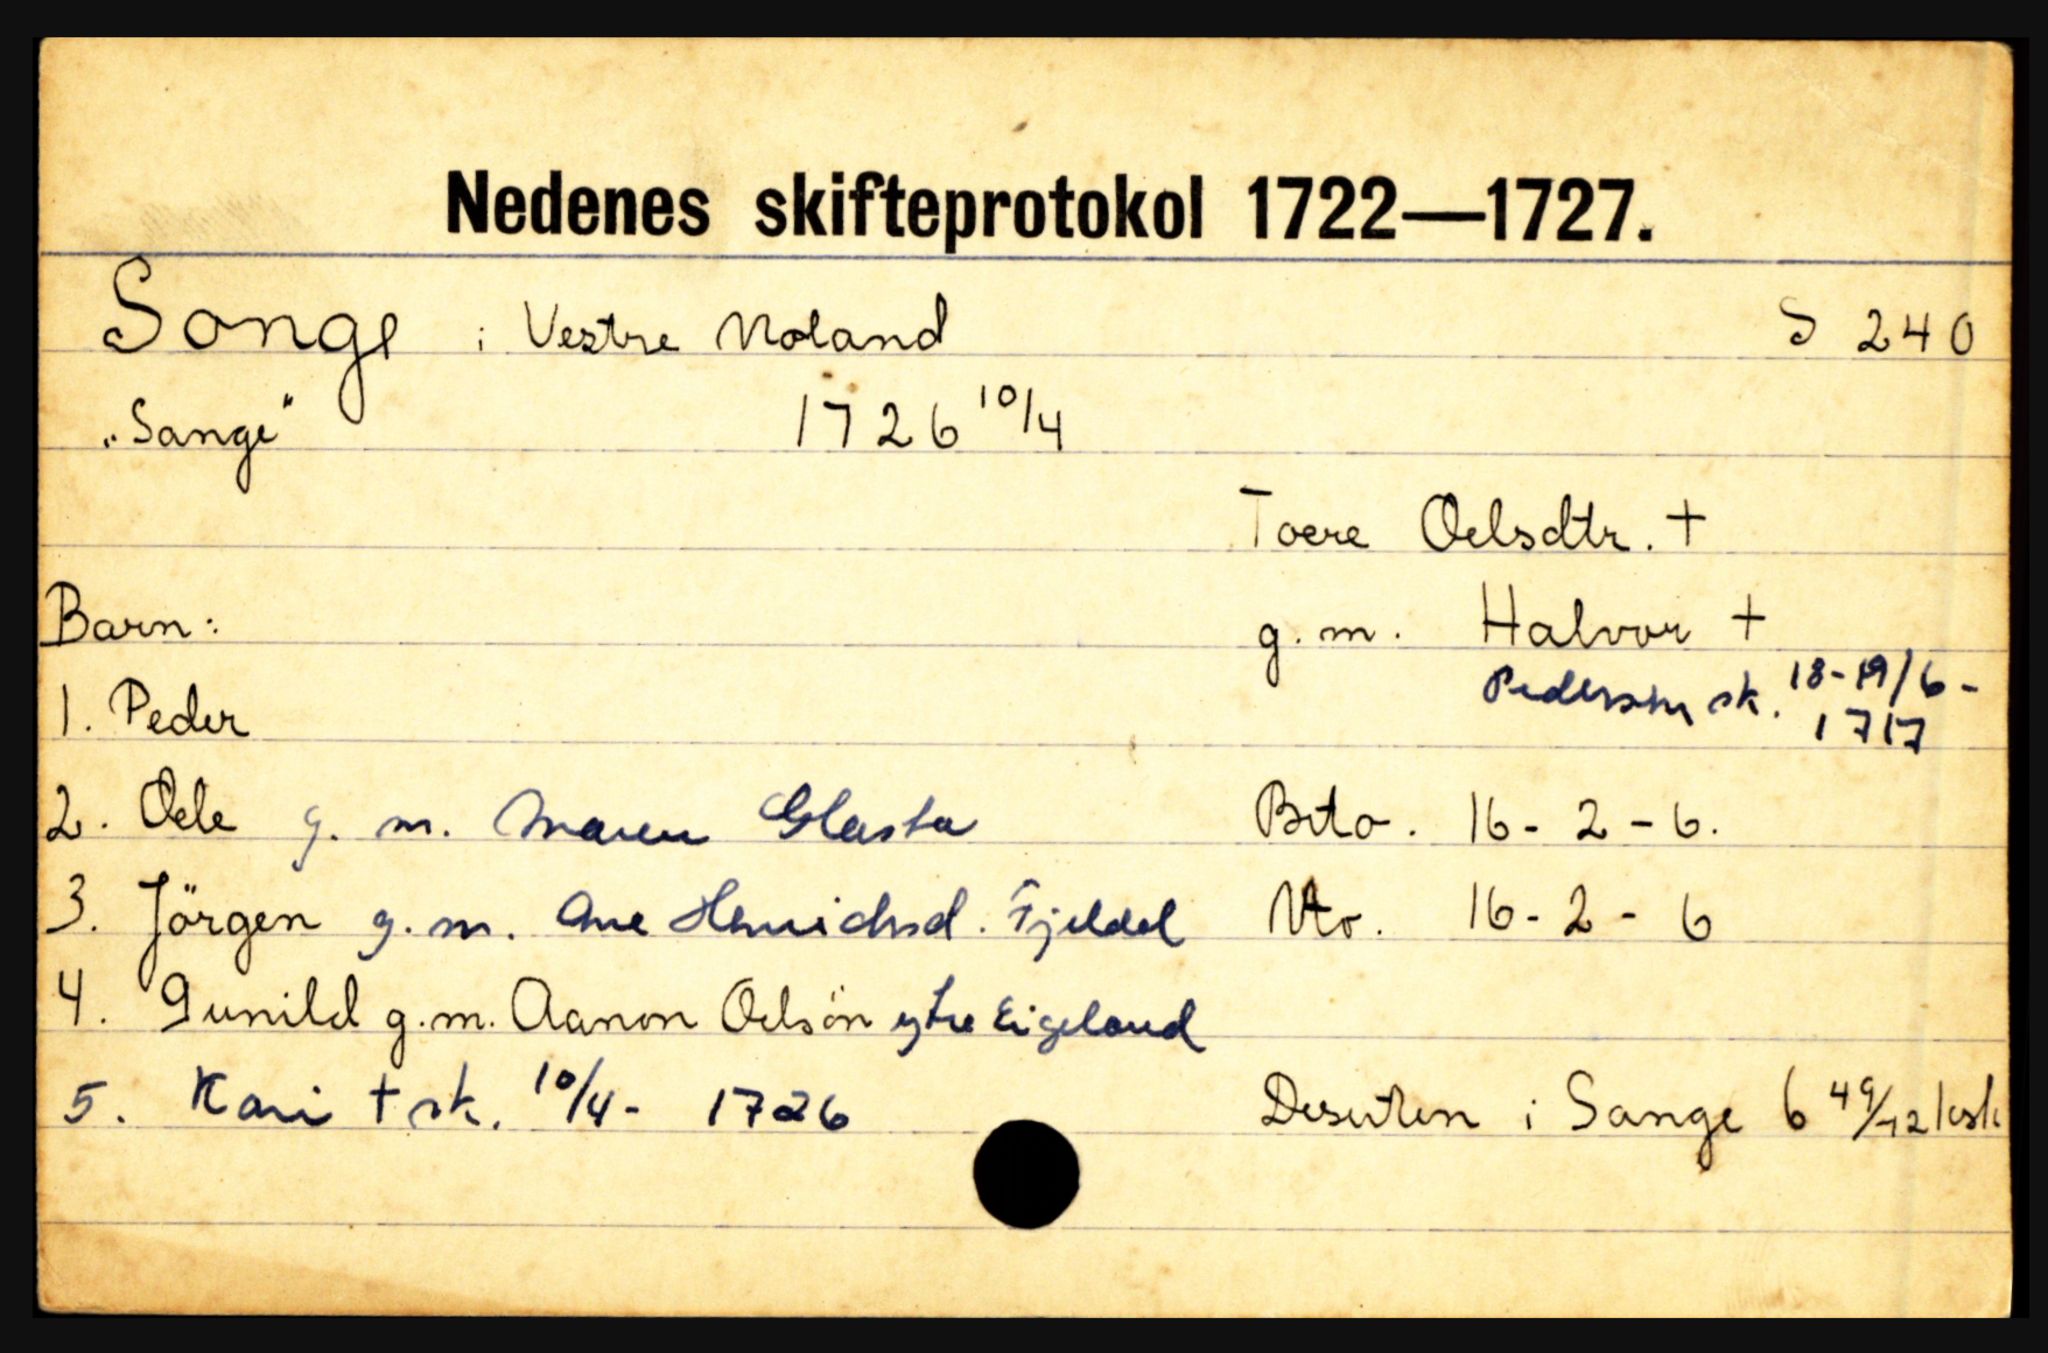 Nedenes skifteprotokol 1722—1727.
Songe i Vestre Moland S 240
„Sange" 1726 10/4
Toere Oelsdtr. +
Barn: g. m. Halvor +
Pedersen sk. 18-19/6-
1. Peder 1717
2. Oele g. m. Maren Glasta Bto. 16-2-6.
3. Jörgen g. m. Ane Henrichsd. Fjeldal Nto. 16-2-6
4. Gunild g.m. Aanon Oelsön ytre Eigeland
5. Kari + sk. 10/4- 1726 Desuten i Sange 6 49/72 ksk